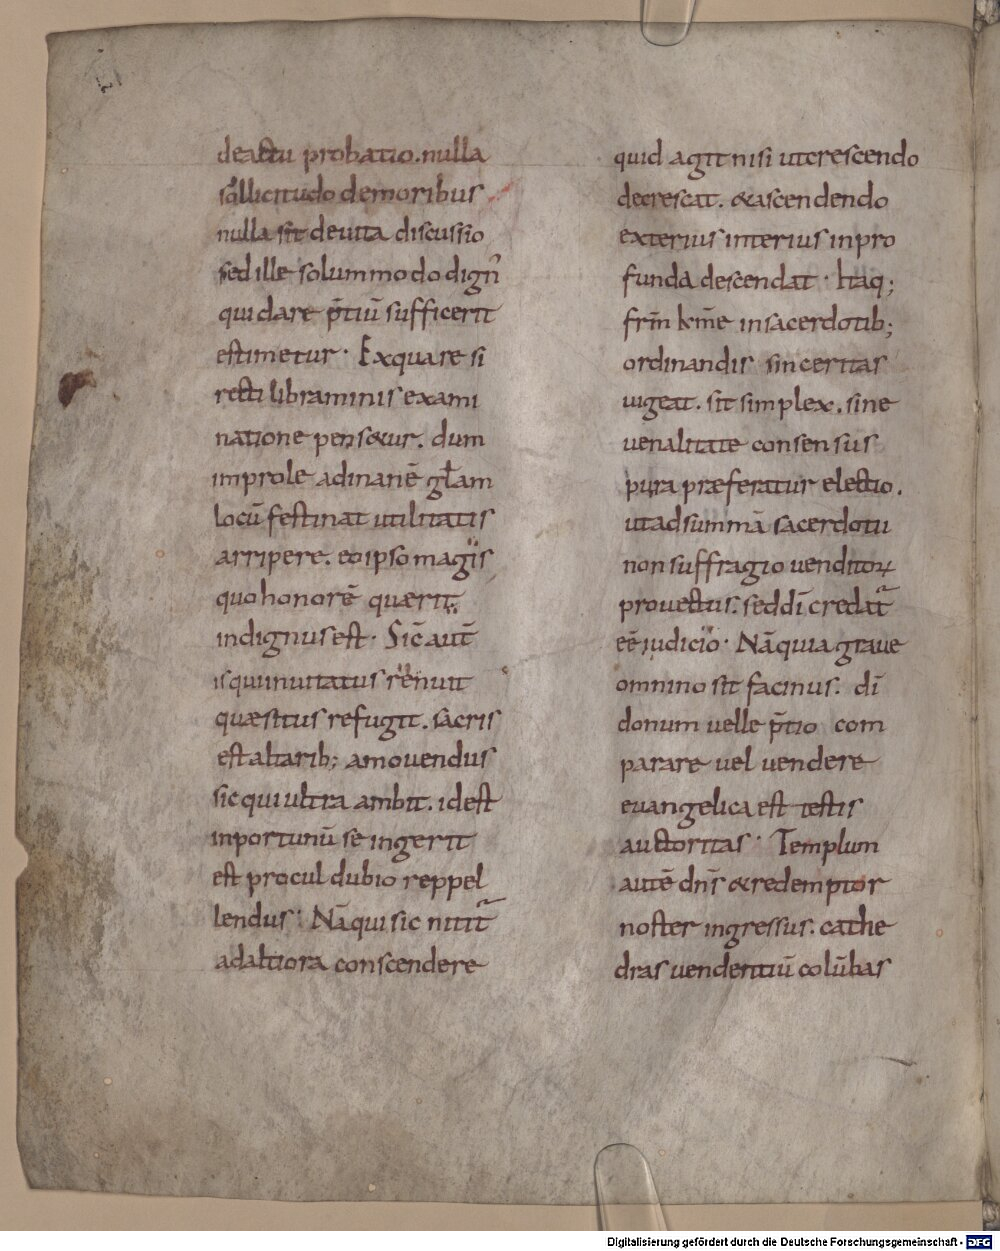 deactu probatio. nulla
sollicitudo demoribus
nulla sit deuita discussio
sed ille solummodo dign̄
qui dare p̄tiū sufficerit
estimetur· Exqua re si
recti libraminis exami
natione pens&ur. dum
improle adinanē głam
locū festinat utilitatis
arripere. eo ipso magis
quo honorē quærit
indignus est· Sic̄ aut̄
is qui inuitatus renuit
quæsitus refugit. sacris
est altarib; amouendus
sic qui ultra ambit. idest
inportunū se ingerit
est procul dubio reppel
lendus· Nā qui sic nitit̄
adaltiora conscendere
quid agit nisi utcrescendo
decrescat. &ascendendo
exterius interius inpro
funda descendat· Itaq;
fr̄m km̄e insacerdotib;
ordinandis sinceritas
uigeat. sit simplex. sine
uenalitate consensus
pura præferatur electio.
utadsummā sacerdotii
non suffragio uenditoꝝ
prouectus: seddī credat̄
eē iudicio· Nā quia graue
omnino sit facinus: dī
donum uelle p̄tio com
parare uel uendere
euangelica est testis
auctoritas· Templum
autē dn̄s &redemptor
noster ingressus: cathe
dras uendentiū colūbas
Digitalisierung gefördert durch die Deutsche Forschungsgemeinschaft - DFG